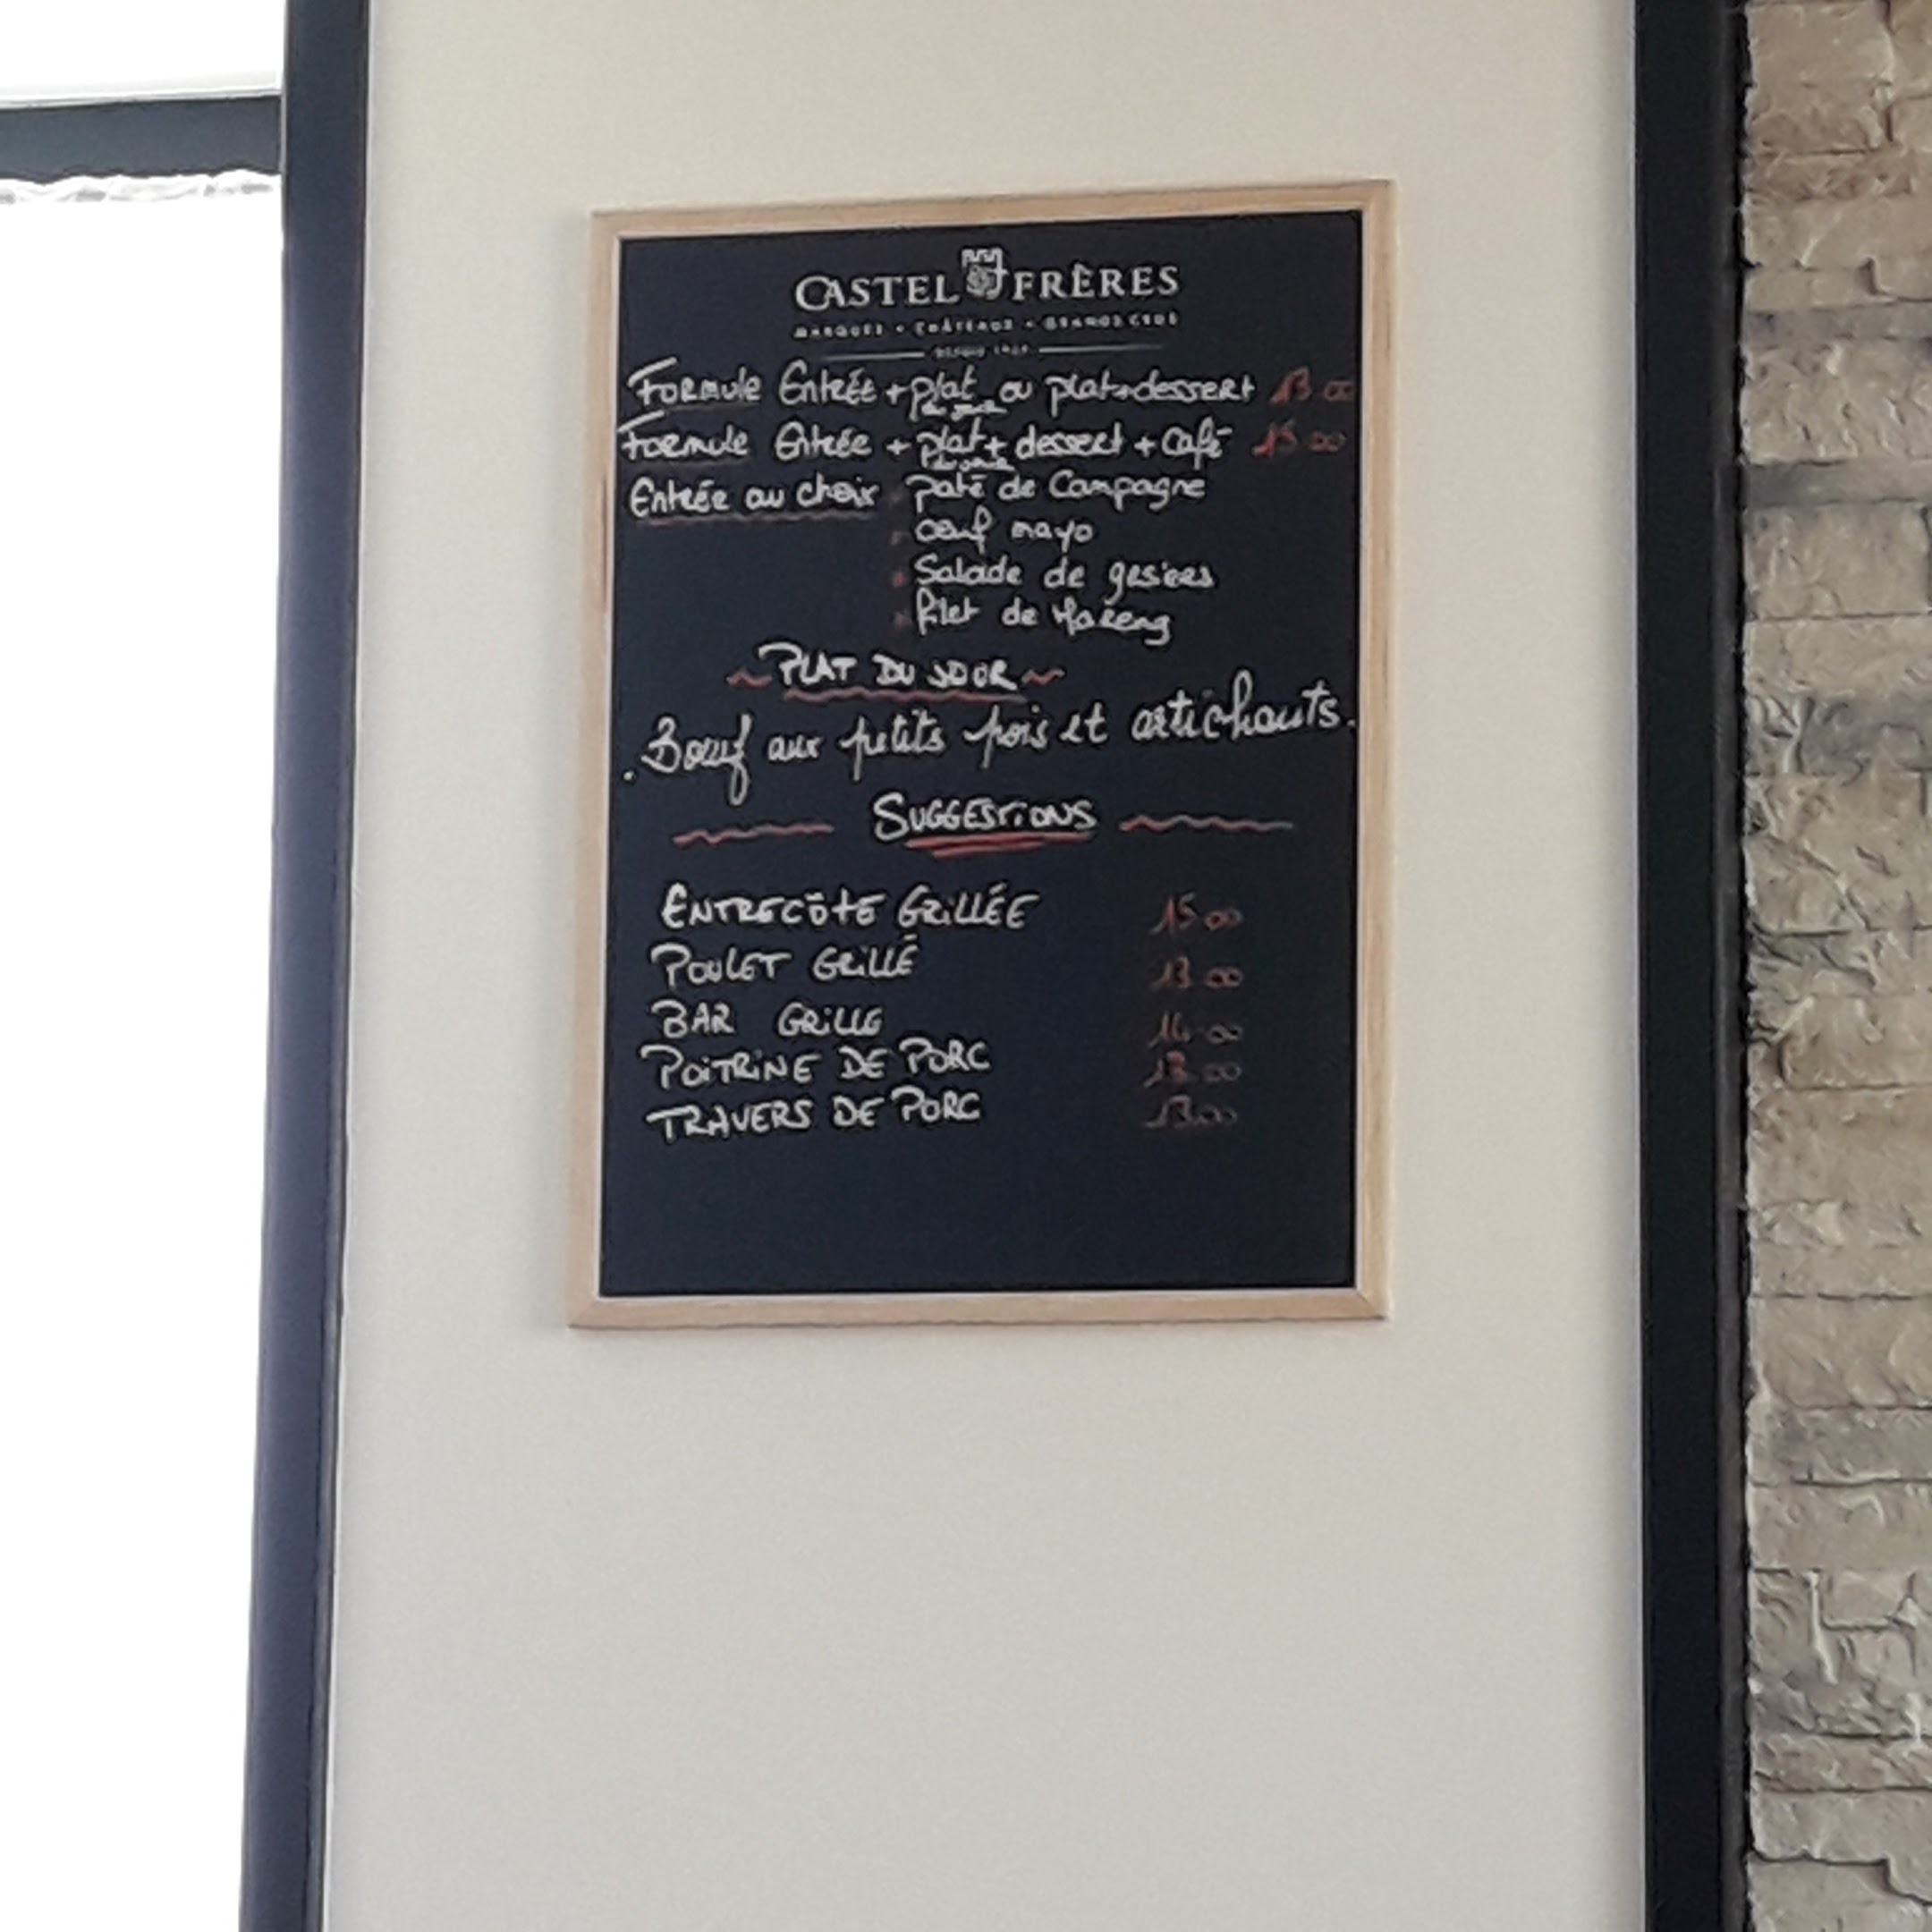 CASTEL FRÈRES
MARQUES • CHÂTEAUX • GRANDS CRUS
DEPUIS 1949
FORMULE Entrée + plat ou plat+dessert 13.00
du jour
FORMULE Entrée + plat + dessert + Café 15.00
du jour
Entrée au choix paté de Campagne
oeuf mayo
Salade de gesiers
filet de Hareng
~ PLAT DU JOUR ~
. Boeuf aux petits pois et artichauts.
SUGGESTIONS
ENTRECÔTE GRILLÉE 15.00
POULET GRILLÉ 13.00
BAR GRILLE 14.00
POITRINE DE PORC
TRAVERS DE PORC 13.00